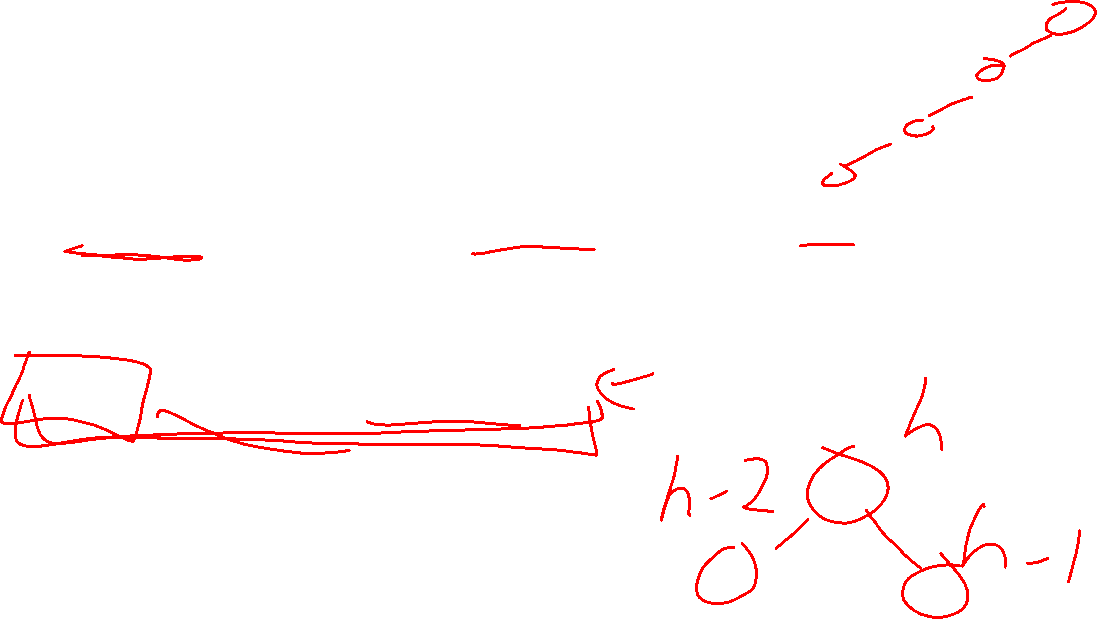 h
h-2
h-1